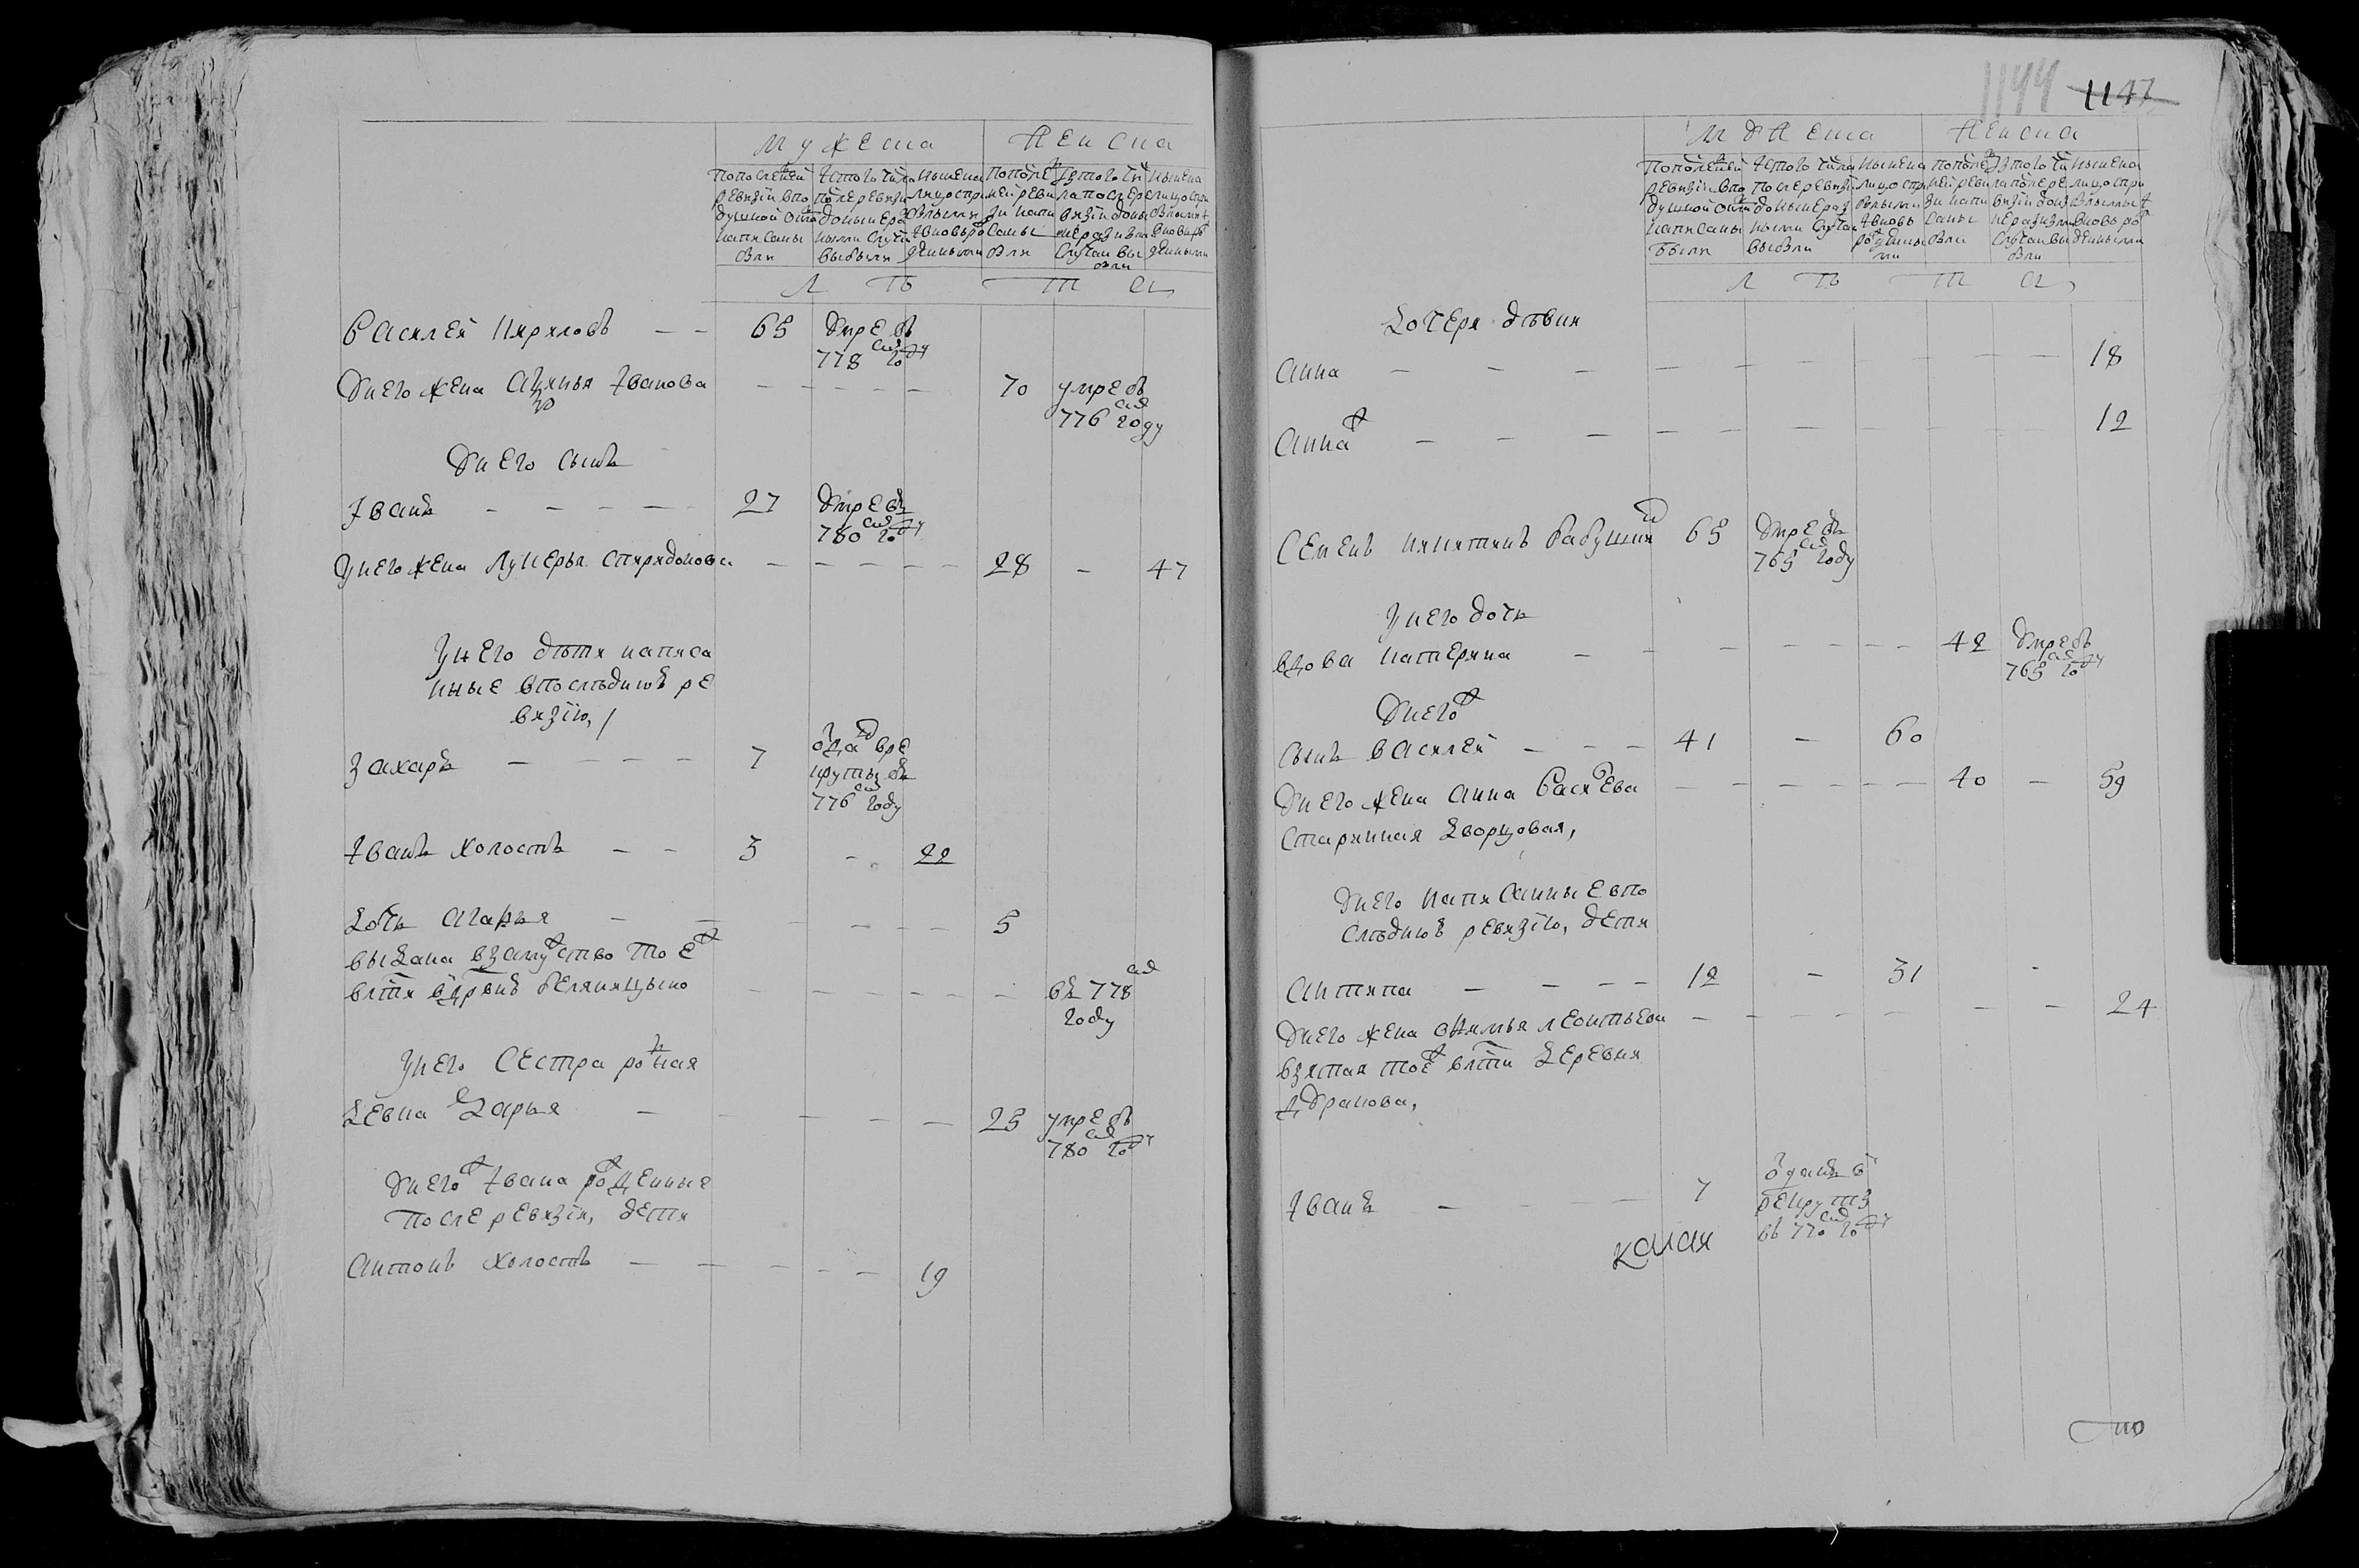 мужеска
женска
попоследней
ревизии впо
душной окла
написаны
были
Изтого числа
после ревизии
донынe раз
ными случаи
выбыли
ныне на
лицо спри
былыми
Ивновь ро
жденными
попосле
ней реви
зи напи
саны
были
Изтого чи
ла после ре
визии доны
не разными
случаи вы
были
ныне на
лицо спри
былыми И
вновь ро
жденными
Л Ѣ Т А,
Василей Кирилов — — 65 Умре въ
778 году
Унего жена Аксинья Иванова — 70 умре въ
776 году
Унего сынъ
Иванъ — — — 27 Умре въ
780 году
Унего жена Лукерья Спиридонова — 28 — 47
Унего дѣти написа
нные впослѣднюю ре
визию,
Захаръ — — — 7 отда вре
круты въ
776 году
Иванъ холостъ — — 3 — 22
Дочь Агафья — — 5
выдана взамужство тоеж
вотчи вдрвню Беляницыно — въ 778
году
Унего сестра родная
Девка Дарья — — 25 умре въ
780 году
Унегож Ивана рожденные
после ревизии, дети
Антонъ холостъ — — 19
1144 1147
мужеска
женска
попоследней
ревизии впо
душной окла
написаны
были
Изтого числа
после ревизи
доныне раз
ными случаи
выбыли
ныне на
лицо спри
былыми
Ивновь
рожденны
ми
попосле
ней реви
зи напи
саны
были
Изтого чи
ла после ре
визии доны
не разными
случаи вы
были
ныне на
лицо спри
былыми И
вновь ро
жденными
Л Ѣ Т А,
Дочери дѣвки
Анна — — — 18
Аннаж — — — 12
Семенъ Никитинъ Рабушкин 65 Умре въ
765 году
Унего дочь
вдова Катерина — — 42 Умре въ
765 году
Унегож
сынъ Василей — — — 41 — 60
Унего жена Анна Васильева — 40 — 59
Старинная Дворцовая,
Унего написанные впо
слѣднюю ревизию, дети
Антипа — — — 12 — 31
Унего жена Леонтьева — 24
взятая тоеж вотчи Деревни
Иванъ — — 7 отданъ в
рекруты
въ 770 году